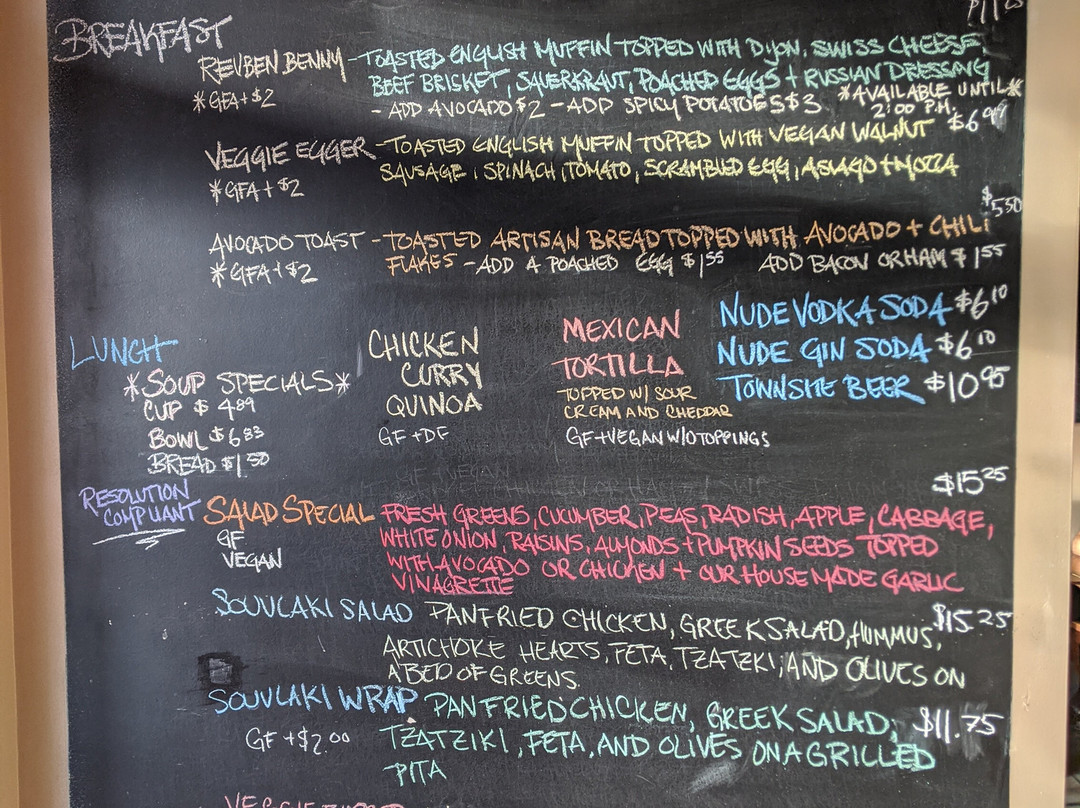 BREAKFAST
REUBEN BENNY - TOASTED ENGLISH MUFFIN TOPPED WITH DIJON, SWISS CHEESE,
BEEF BRISKET, SAUERKRAUT, POACHED EGGS + RUSSIAN DRESSING
*GFA +$2
- ADD AVOCADO $2 - ADD SPICY POTATOES $3
*AVAILABLE UNTIL*
2:00 P.M.
VEGGIE EGGER - TOASTED ENGLISH MUFFIN TOPPED WITH VEGAN WALNUT $6.99
SAUSAGE, SPINACH, TOMATO, SCRAMBLED EGG, ASIAGO + MOZZA
*GFA + $2
$5.50
AVOCADO TOAST - TOASTED ARTISAN BREAD TOPPED WITH AVOCADO + CHILI
FLAKES - ADD A POACHED EGG $1.55 ADD BACON OR HAM $1.55
*GFA + $2
LUNCH
*SOUP SPECIALS*
CUP $4.89
BOWL $6.83
BREAD $1.50
CHICKEN
CURRY
QUINOA
GF + DF
MEXICAN
TORTILLA
TOPPED W/ SOUR
CREAM AND CHEDDAR
GF + VEGAN W/O TOPPINGS
NUDE VODKA SODA $6.10
NUDE GIN SODA $6.10
TOWNSITE BEER $10.95
RESOLUTION
COMPLIANT
$15.25
SALAD SPECIAL FRESH GREENS, CUCUMBER, PEAS, RADISH, APPLE, CABBAGE,
GF
VEGAN
WHITE ONION, RAISINS, ALMONDS + PUMPKIN SEEDS TOPPED
WITH AVOCADO OR CHICKEN + OUR HOUSE MADE GARLIC
VINAGRETTE
SOUVLAKI SALAD PANFRIED CHICKEN, GREEK SALAD, HUMMUS, $15.25
ARTICHOKE HEARTS, FETA, TZATZKI, AND OLIVES ON
A BED OF GREENS.
SOUVLAKI WRAP PAN FRIED CHICKEN, GREEK SALAD, $11.75
GF +$2.00
TZATZIKI, FETA, AND OLIVES ON A GRILLED
PITA